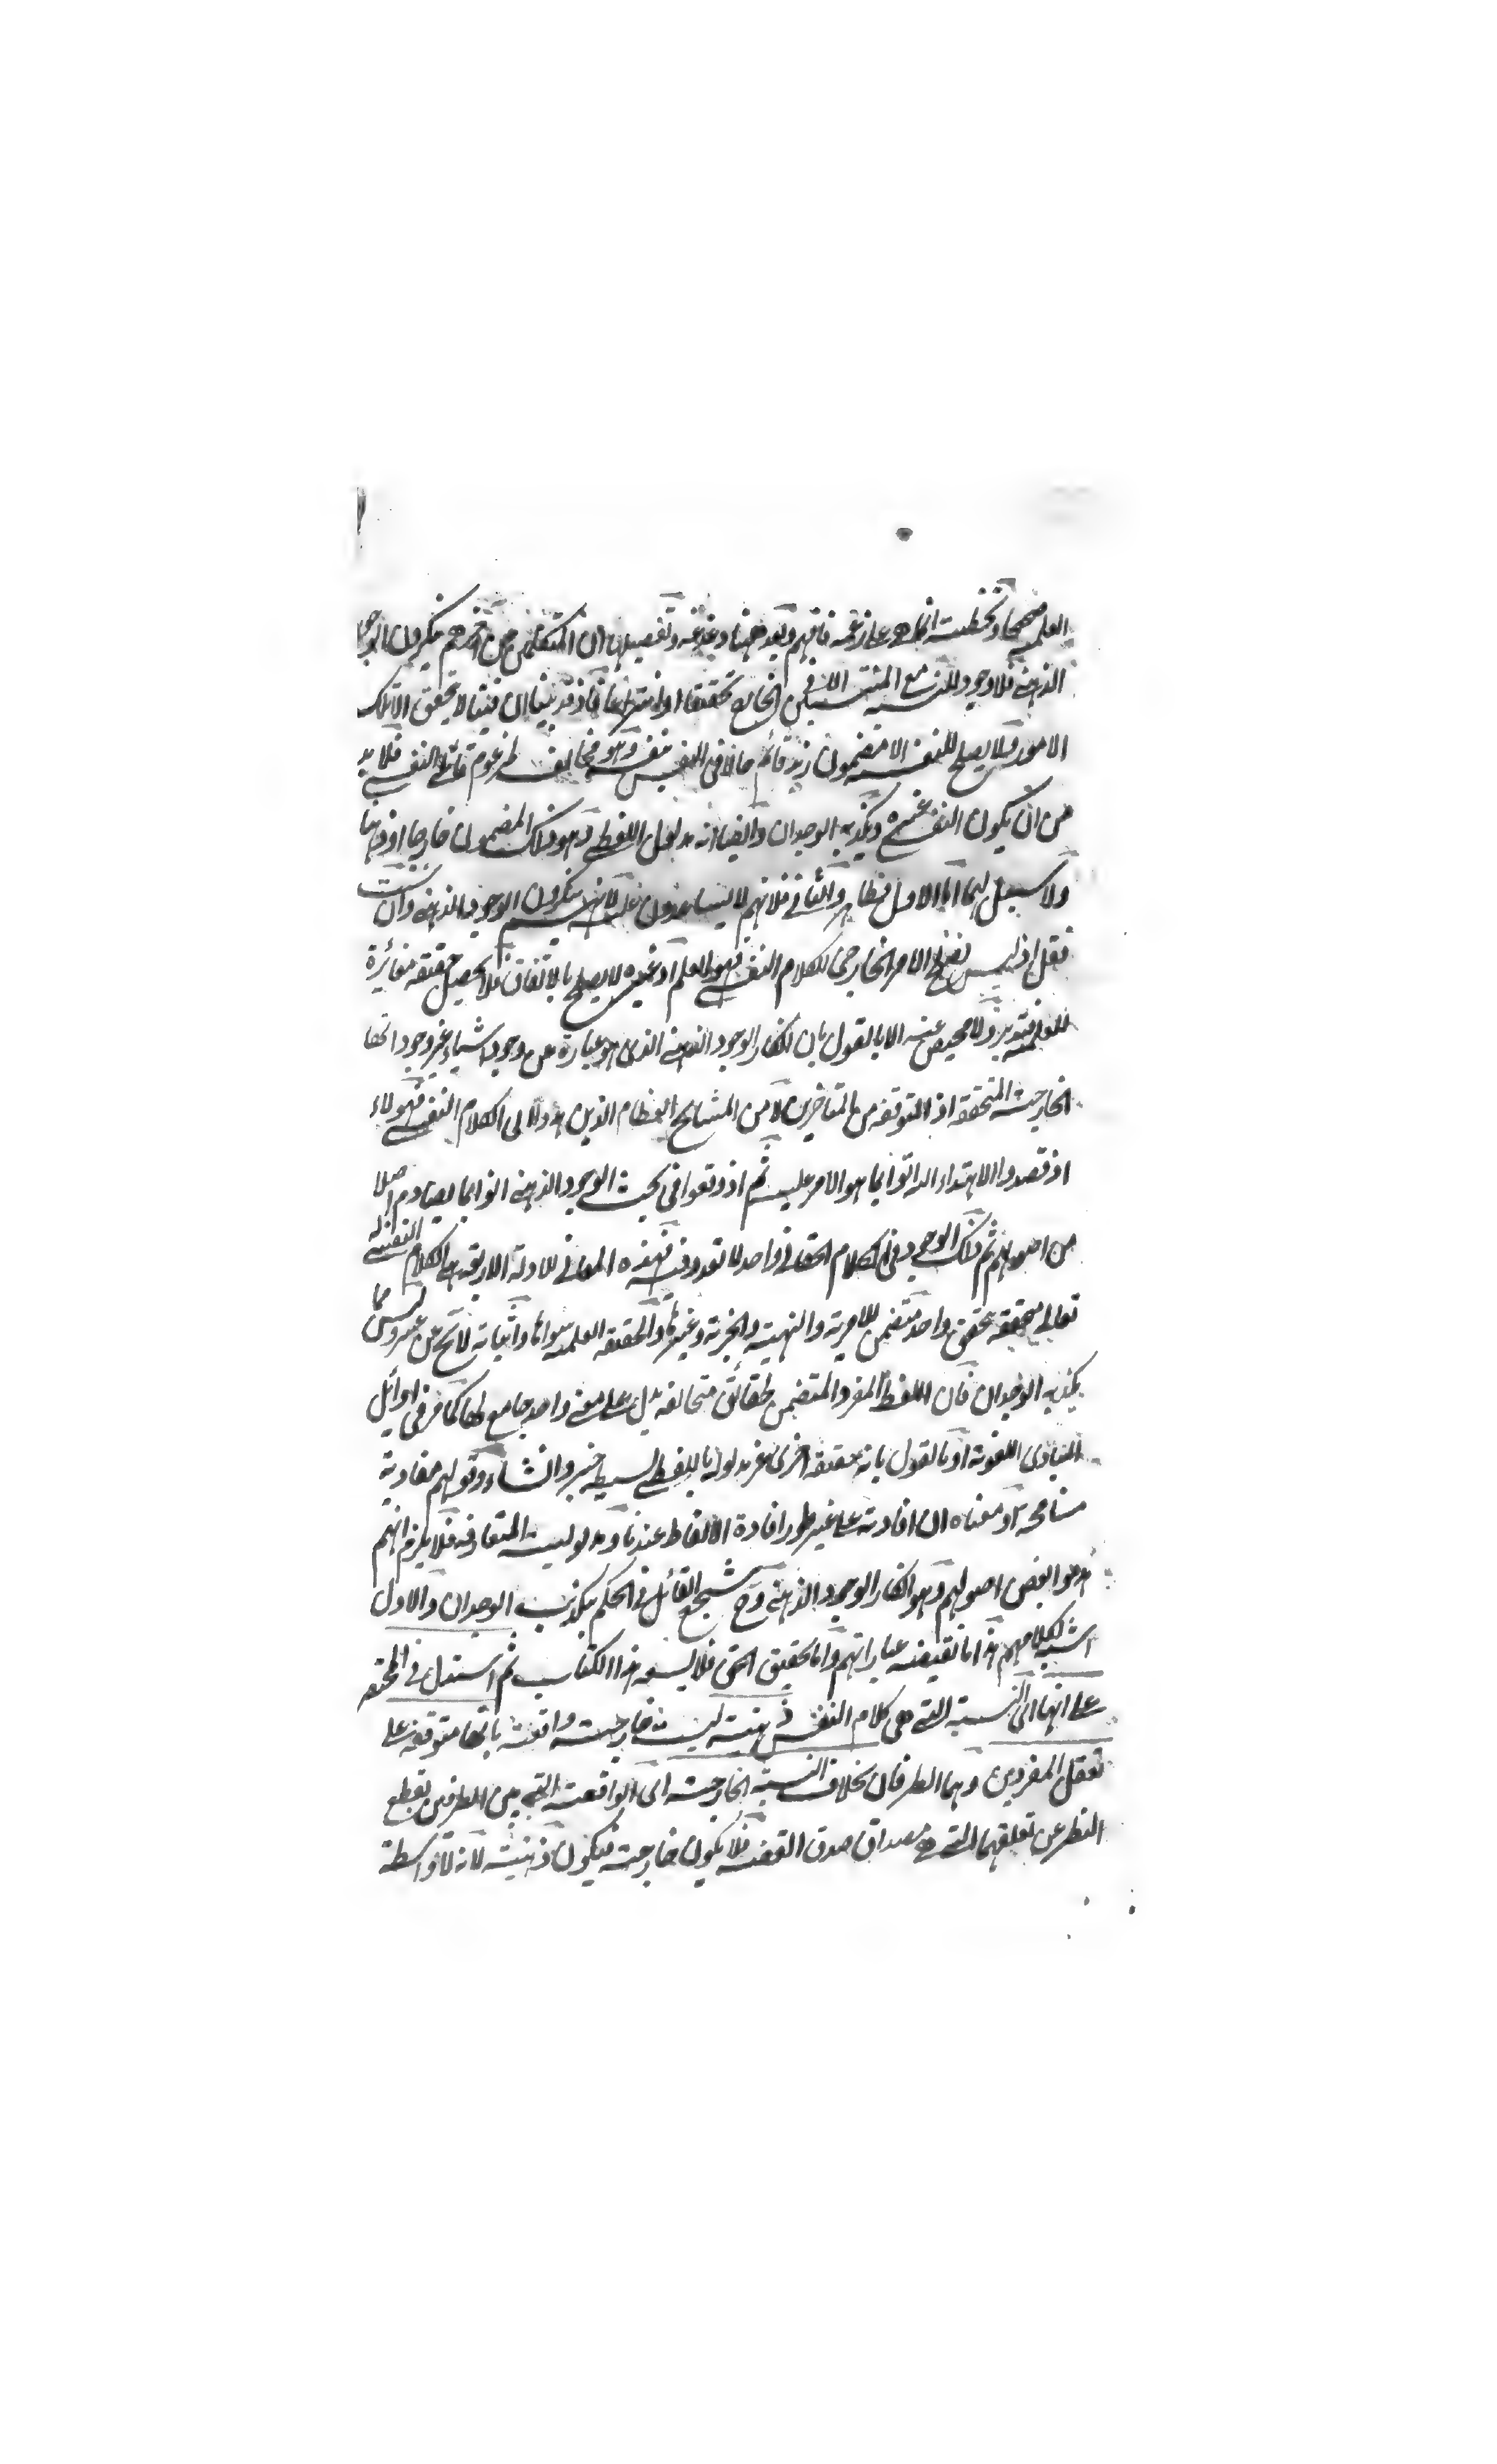 العلمية صحيحا وتخطيته انما هى على زعمه فافهم وبعد ههنا دغدغة وتفصيلها ان المتكلمين عن آخرهم ينكرون الوجود
الذهنى فلا وجود للنسبة مع المنتسبين الا فى الخارج تحقيقا او انتزاعا فاذ قد بينا ان فينا لا يتحقق الا تلك
الامور ولا يصلح للنفسية الا مضمون زيد قائم حالا فى النفس وهو مخالف لمزعوم قائلى النفسى فلا بد
من ان يكون النفسى غيره ويكذبه الوجدان وايضا انه مدلول اللفظى وهو ذلك المضمون خارجا او ذهنا
ولا سبيل اليهما اما الاول فظاهر والثانى فلانهم لا يساعدون عليه لانهم ينكرون الوجود الذهنى وان شئت
فقل اذ ليس يصلح الامر الخارجى للكلام النفسى فهو العلم او غيره لا يصلح بالاتفاق فلا يحصل حقيقة مغائرة
للعلمية فتدبر ولا محيص عنه الا بالقول بان انكار الوجود الذهنى الذى هو عبارة عن وجود اشياء غير وجوداتها
الخارجية المتحققة اذ التوقف من المتاخرين لا من المشايخ العظام الذين هدوا الى الكلام النفسى فهولاء
اذ قصدوا الاهتداء اليه اتوا بما هو الامر عليه ثم اذ وقعوا فى بحث الوجود الذهنى اتوا بما يصادم اصلا
من اصولهم ثم ذلك الوجود فى الكلام الحقانى واحد لا تعدد فيه فهذه المعانى للادلة الاربعة هى الكلام النفسى له
تعالى متحققة بتحقق واحد متضمن للامرية والنهيية والخبرية وغيرها والحقيقة العلمية سواها واثباته لا يخ عن عسر وليس مما
يكذبه الوجدان فان اللفظ المفرد المتضمن لحقائق متخالفة يدل على معنى واحد جامع لها كما مر فى اوائل
المبادى اللغوية او بالقول بانه حقيقة اخرى غير مدلولة باللفظى بسيطة خبر وانشاء وقولهم مفاد به
مسامحة او معناه ان افادته على غير طور افادة الالفاظ عندنا ومدلوليته المتعارفة فلا يلزم انهم
هدموا بعض اصولهم وهو انكار الوجود الذهنى وح يشجع القائل فى الحكم بكذب الوجدان والاول
اشبه بكلامهم هذا ما تقيضه عباراتهم واما تحقيق الحق فلا يسعه هذا الكتاب ثم استدل فى المختصر
على انها اى النسبة التى هى كلام النفس ذهنية ليست خارجية واقعية بانها متوقفة على
تعقل المفردين وهما الطرفان بخلاف النسبة الخارجية اى الواقعية التى بين الطرفين بقطع
النظر عن تعلقهما التى هى مصداق صدق القضية فلا يكون خارجية فيكون ذهنية لانه لا واسطة